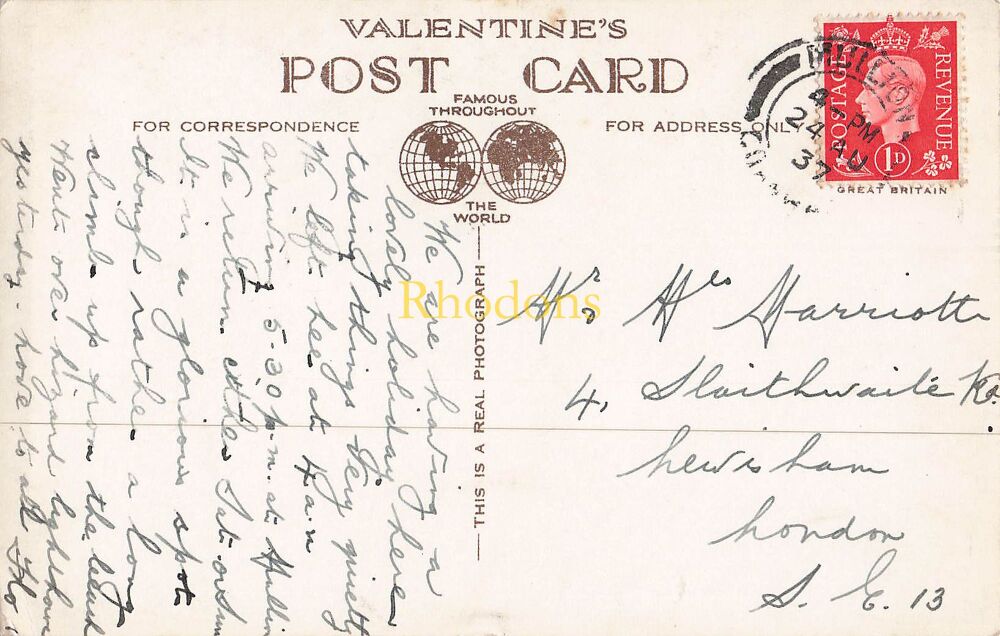 VALENTINE'S
POST CARD
FAMOUS
THROUGHOUT
THE
WORLD
FOR CORRESPONDENCE
FOR ADDRESS ONLY
MULLION
4- PM
24 AU
37
POSTAGE
REVENUE
1D
GREAT BRITAIN
We are having a
lovely holiday here
taking things very quietly
We left here at 4 a.m
arriving 5-30 p.m. at Mullion
We return either Sat or Sun
It is a glorious spot
though rather a long
climb up from the beach
Went over lizard lighthouse
yesterday - love to all Flo
THIS IS A REAL PHOTOGRAPH
Rhodons
Mrs Marriott
4, Slaithwaite Rd.
Lewisham
London
S. E. 13